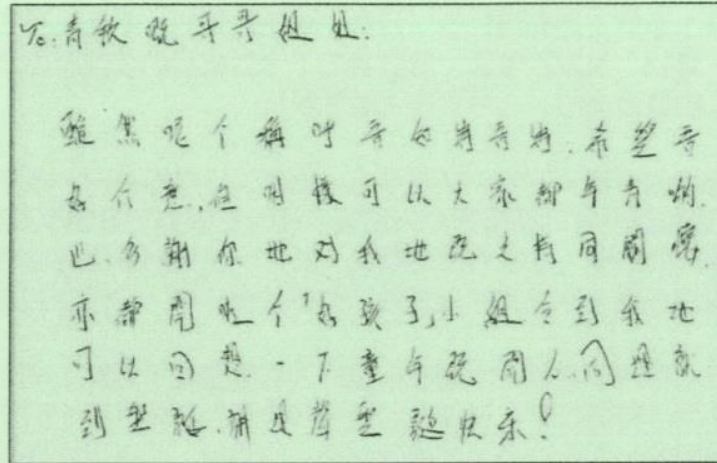 To:青牧既哥哥姐姐:
雖然呢个稱呼,希望吾
好介意,但咁樣可以大家都年青啲
巴.多謝你地对我地既支持同關愛,
亦都開呢个"好孩子"小組令到我地
可以回想一下童年既開人,同埋就
到聖誕,聲聖誕快樂!